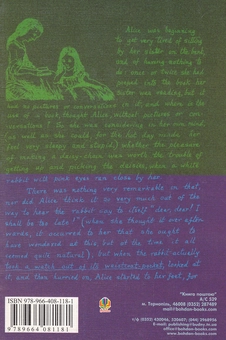 Alice was beginning
to get very tired of sitting
by her sister on the bank,
and of having nothing to
do: once or twice she had
peeped into the book her
sister was reading, but it
had no pictures or conversations in it, and where is the
use of a book, thought Alice, without pictures or con-
versations? So she was considering in her own mind,
(as well as she could, for the hot day made her
feel very sleepy and stupid,) whether the pleasure
of making a daisy-chain was worth the trouble of
getting up and picking the daisies, when a white
rabbit with pink eyes ran close by her.
There was nothing very remarkable in that,
nor did Alice think it so very much out of the
way to hear the rabbit say to itself "dear, dear! I
shall be too late!" (when she thought it over after-
wards, it occurred to her that she ought to
have wondered at this, but at the time it all
seemed quite natural); but when the rabbit actually
took a watch out of its waistcoat-pocket, looked at
it, and then hurried on, Alice started to her feet, for
ISBN 978-966-408-118-1
9 789664 081181
"Книги поштою"
А/С 529
м. Тернопіль, 46008 (0352) 287489
mail@bohdan-books.com
E-mail: publishing@budny.te.ua
www.bohdan-books.com